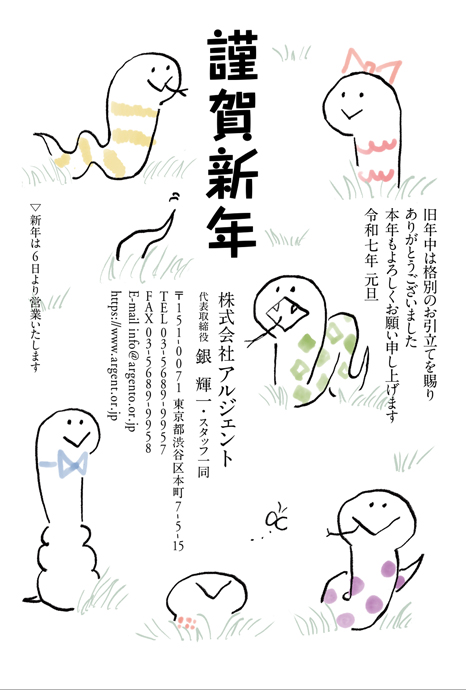 謹賀新年
旧年中は格別のお引立てを賜り
ありがとうございました
本年もよろしくお願い申し上げます
令和七年 元旦
株式会社 アルジェント
代表取締役 銀 輝一・スタッフ一同
〒151-0071 東京都渋谷区本町7-5-15
TEL 03-5689-9957
FAX 03-5689-9958
E-mail info@argento.or.jp
https://www.argent.or.jp
▽新年は6日より営業いたします